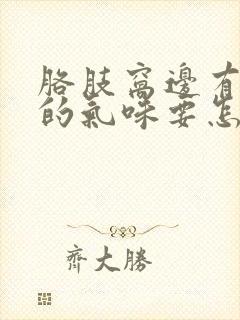 胳肢窩邊有
的氣味要怎
齊大勝